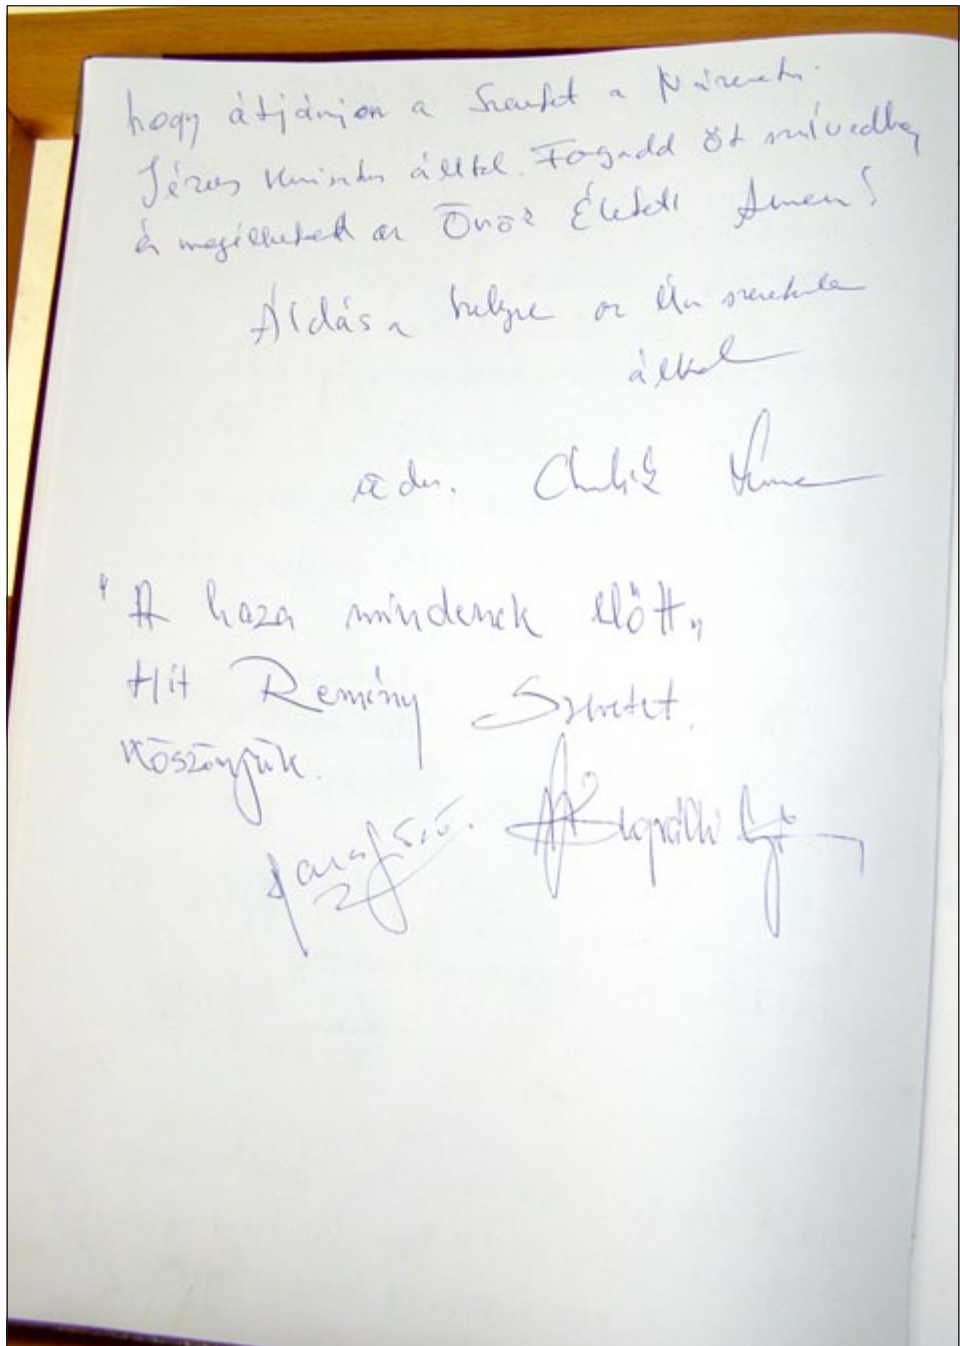 hogy átjárjon a Szeretet a Názáreti
Jézus Krisztus álltal. Fogadd Őt szívedbe
és megélheted az Örök Életet Ámen!
Áldás a helyre az Úr szeretete
által
"A haza mindenek előtt"
Hit Remény Szeretet.
Köszönjük.